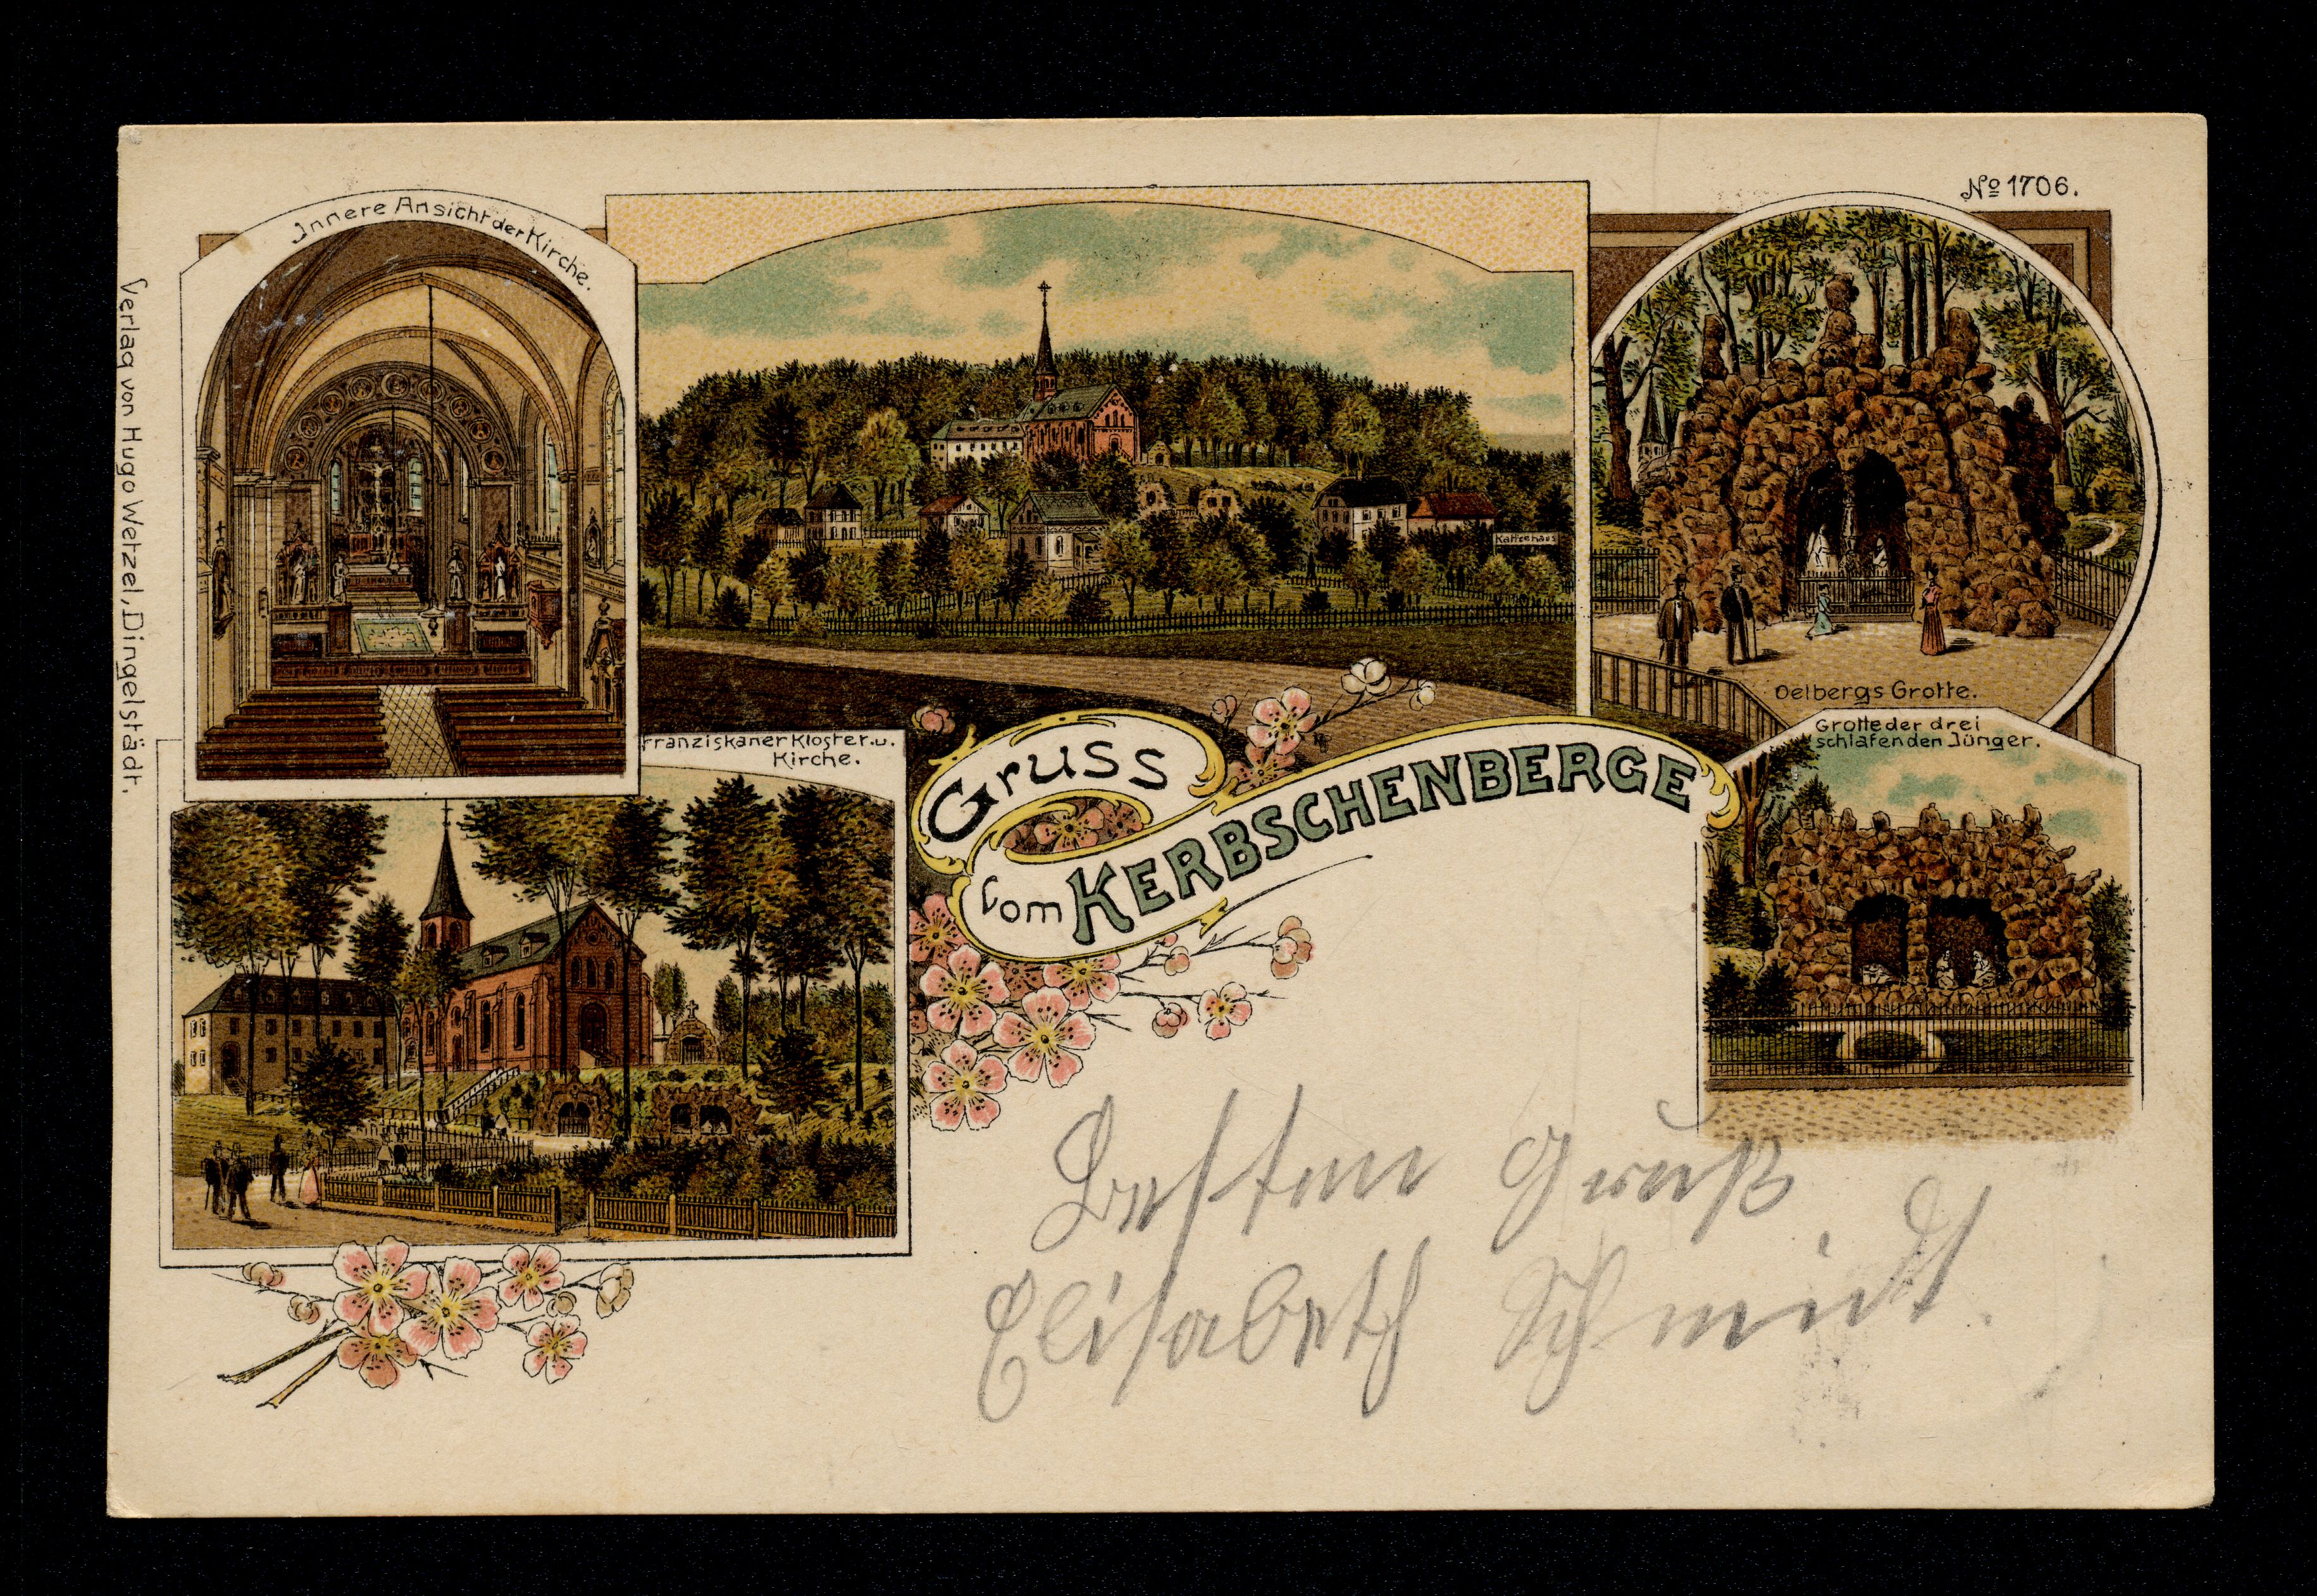 No 1706.
Innere Ansicht der Kirche.
Verlag von Hugo Wetzel, Dingelstädt.
Kaffeehaus
Oelbergs Grotte.
Grotte der drei
schlafenden Jünger.
Franziskaner Kloster u.
Kirche.
Gruss
vom KERBSCHENBERGE
Besten Gruß
Elisabeth Schmidt.